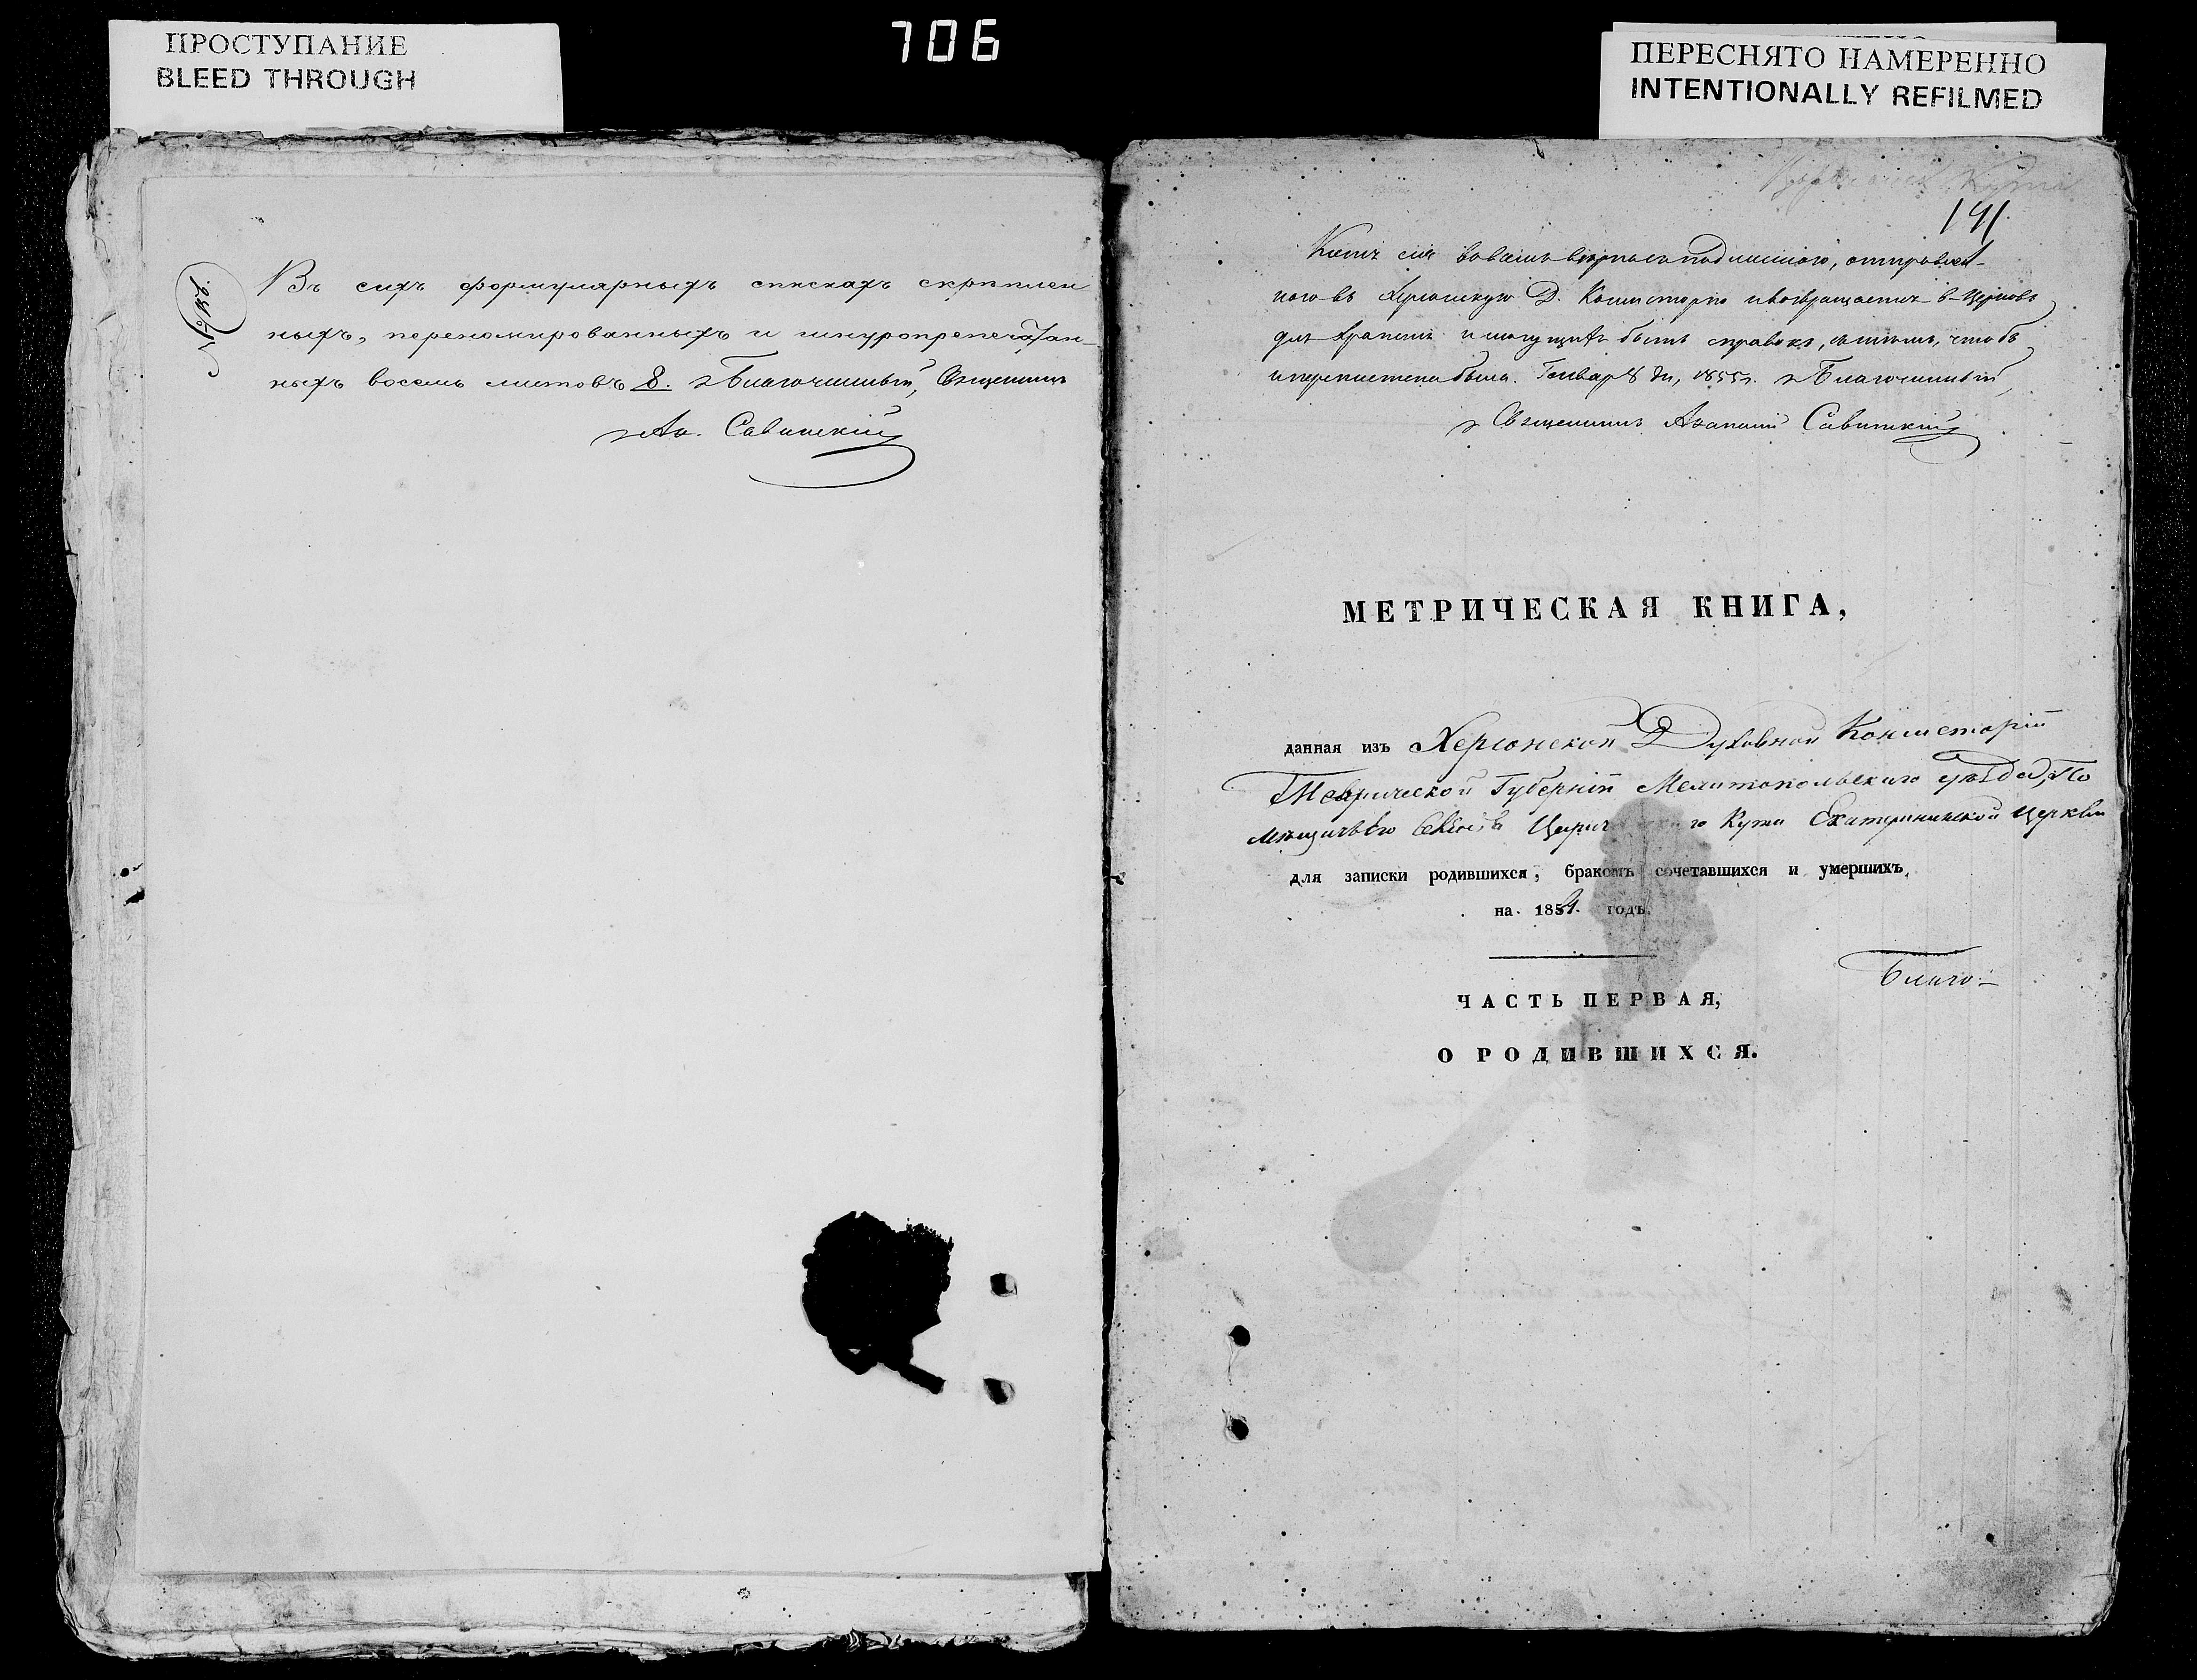 ПРОСТУПАНИЕ
BLEED THROUGH
706
ПЕРЕСНЯТО НАМЕРЕННО
INTENTIONALLY REFILMED
Въ сихъ формулярныхъ спискахъ скрѣплен
ныхъ, переномированныхъ и шнуропрепечатан-
ныхъ восемь листовъ 8. Благочинный, Священникъ
Ав. Савицкій
191.
Копія сія во всемъ вѣрна съ подлинною, отправлен-
ною въ Херсонскую Д. Консисторію и возвращается в церковь
для храненія и могущихъ быть справокъ, съ тѣмъ, чтобъ
и переплетена была. Генваря 8 дн, 1855 г. Благочинный,
Священникъ Савицкій
МЕТРИЧЕСКАЯ КНИГА,
данная изъ Херсонской Духовной Консисторіи
Таврической Губерніи Мелитопольскаго уѣзда, По
Кута Екатерининской церкви
для записки родившихся, бракомъ сочетавшихся и умершихъ,
на 1854. годъ.
Благо-
ЧАСТЬ ПЕРВАЯ,
О РОДИВШИХСЯ.